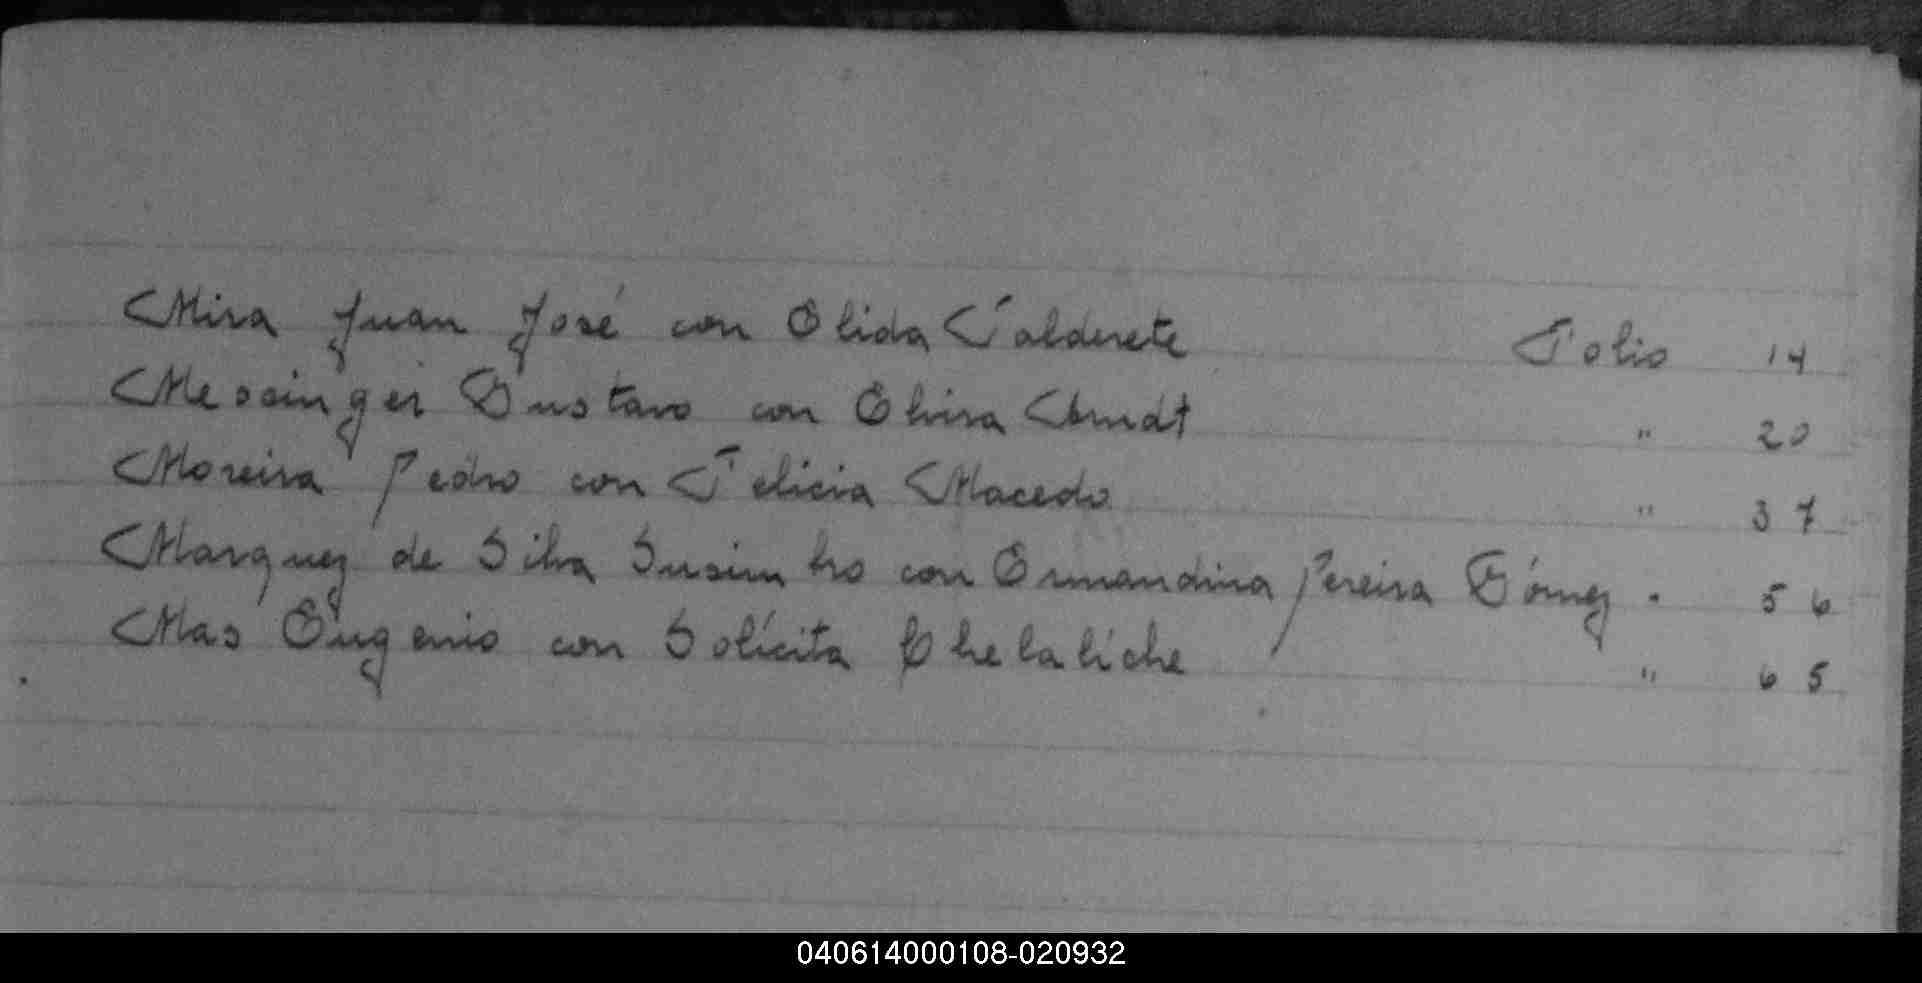 Mira Juan José con Elida Falderete Folio 14
Messinger Gustavo con Elvira Arndt " 20
Moreira Pedro con Felicia Macedo " 37
Marquez de Silva con Ermandina Pereira Gómez . 56
Mas Eugenio con Solícita Chelaliche " 65
040614000108-020932